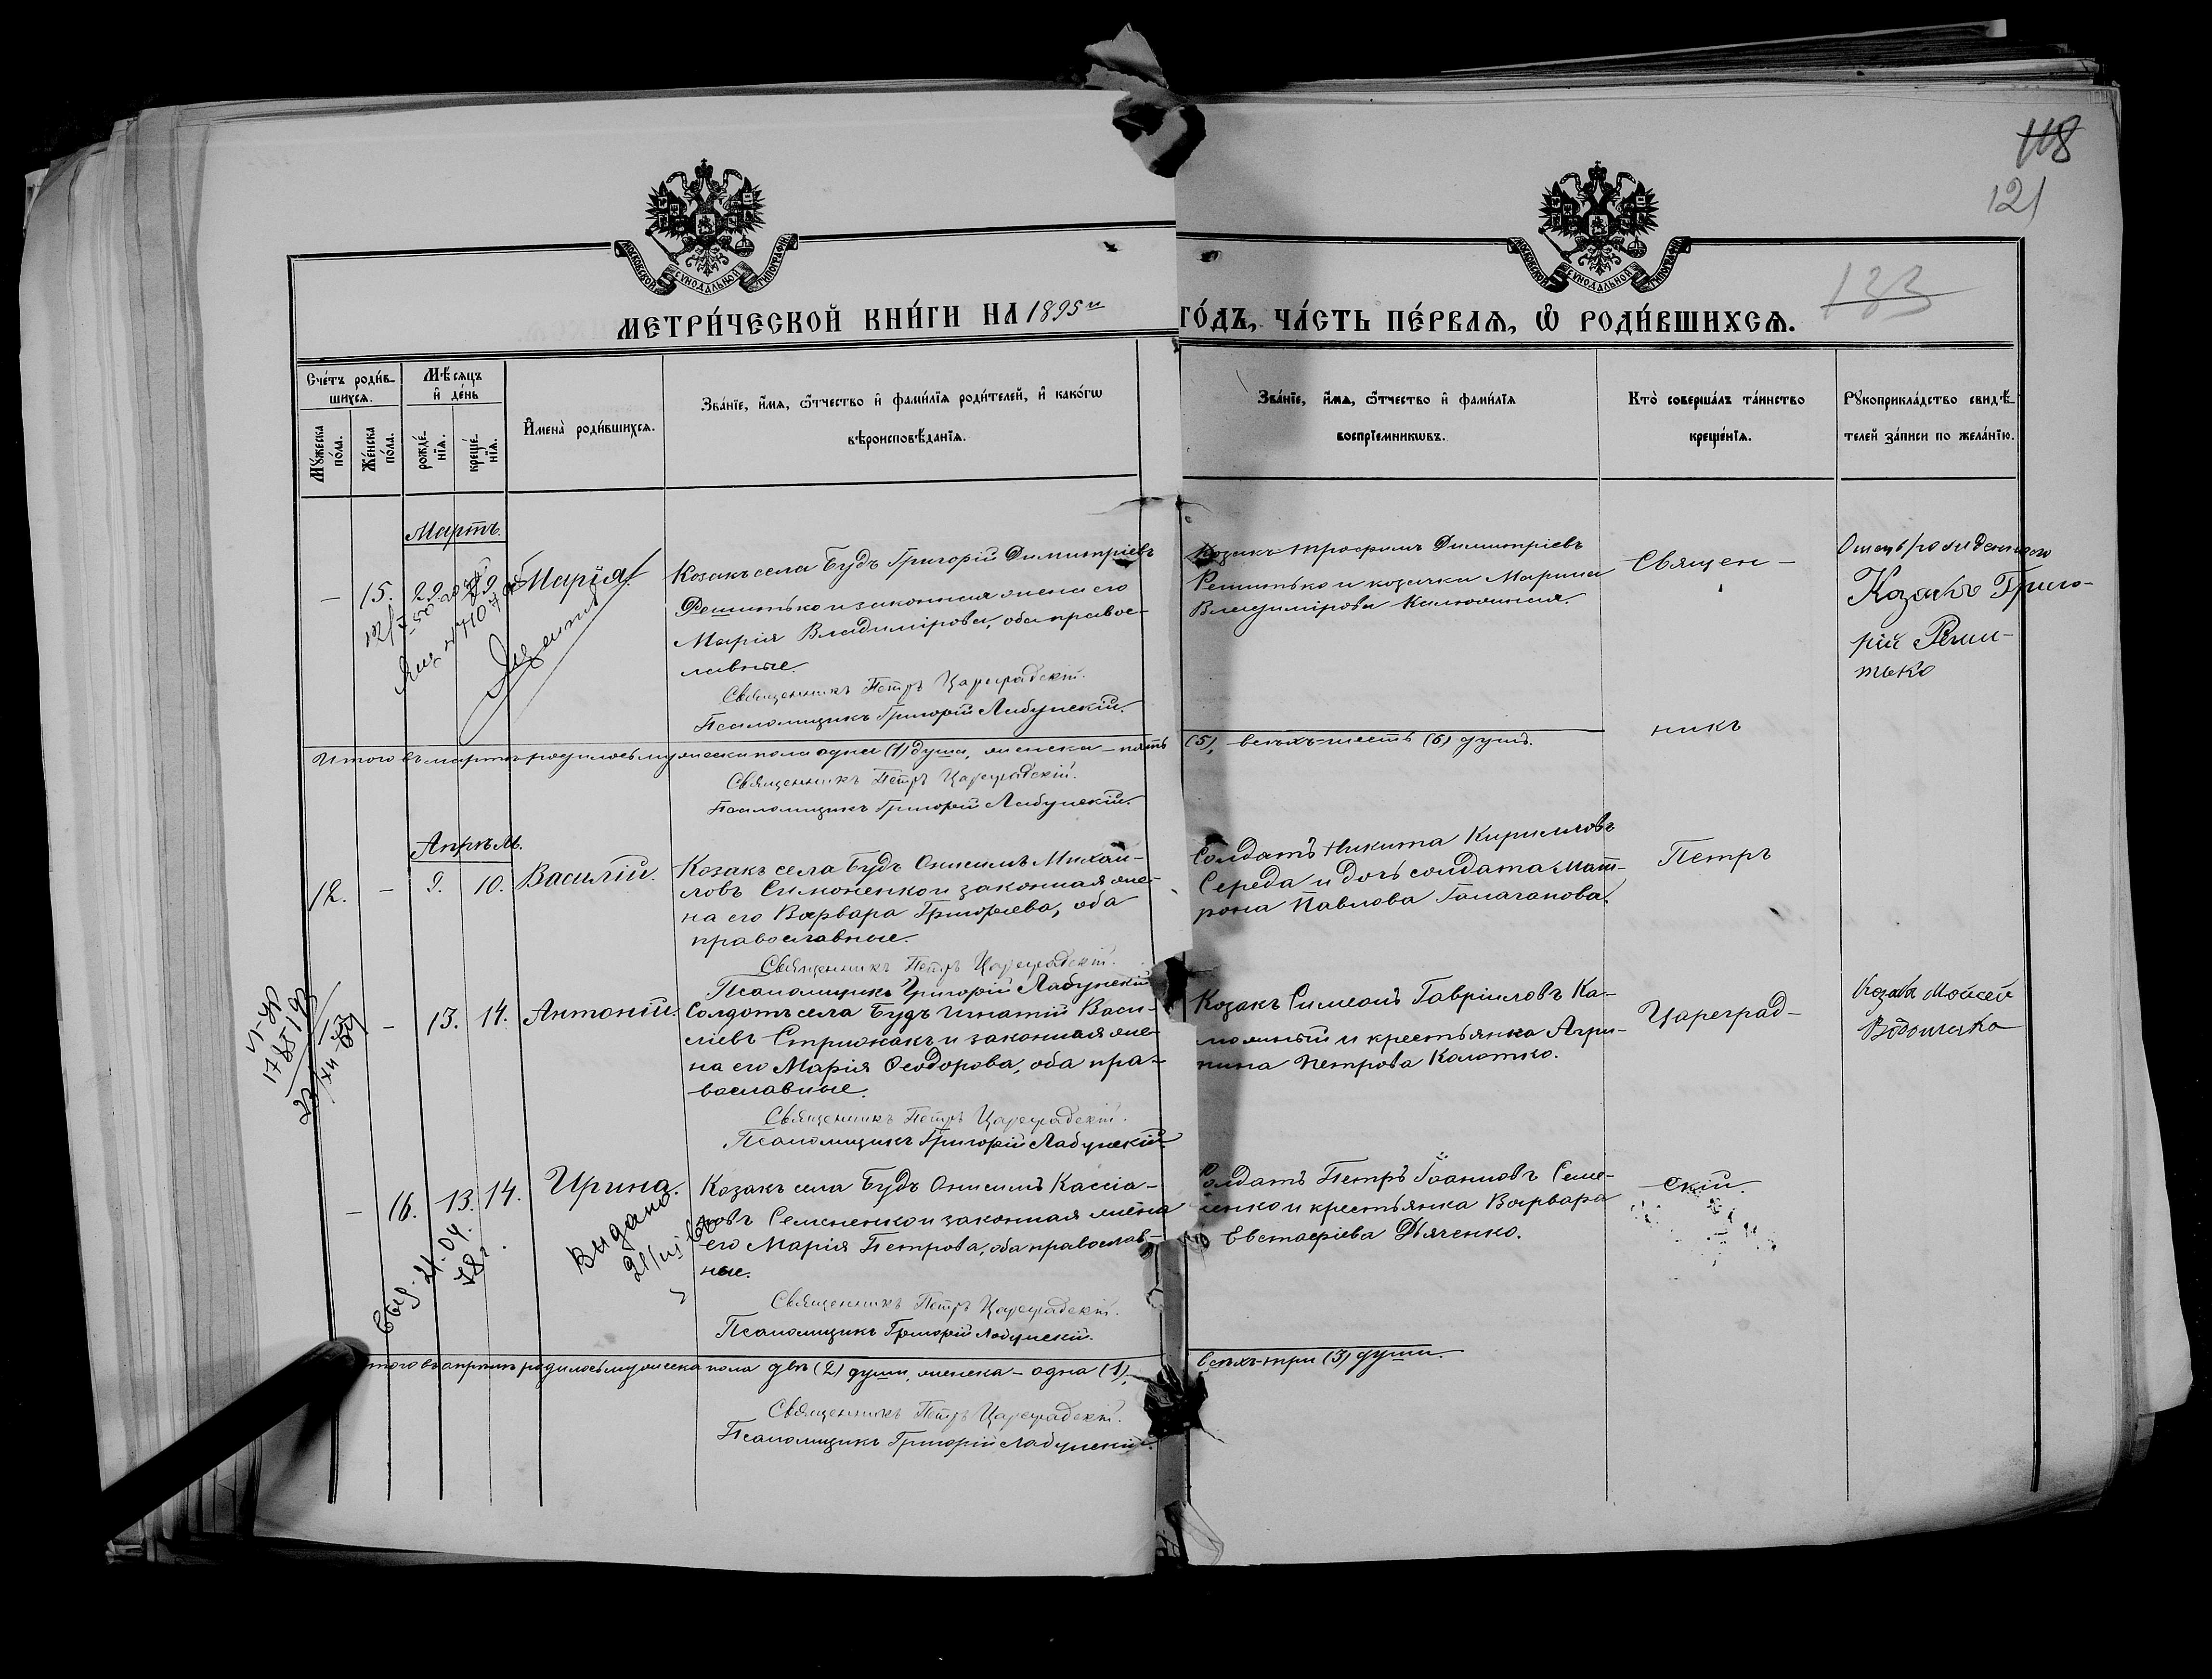 118
121
133
МОСКОВСКОЙ СУНОДАЛЬНОЙ ТИПОГРАФІИ
МОСКОВСКОЙ СУНОДАЛЬНОЙ ТИПОГРАФІИ
МЕТРИ́ЧЕСКОЙ КНИ́ГИ НА 1895й
ГО́ДЪ, ЧА́СТЬ ПЕ́РВАѦ, Ѿ РОДИ́ВШИХСѦ.
Сче́тъ роди́в-
шихсѧ.
Мꙋ́жеска
по́ла.
Же́нска
по́ла.
Мѣ́сѧцъ
и҆ де́нь
рожде́-
нїѧ.
креще́-
нїѧ.
И҆мена̀ роди́вшихсѧ.
Зва́нїе, и҆́мѧ, ѻ҆́тчество и҆ фами́лїѧ роди́телей, и҆ како́гѡ
вѣроисповѣ́данїѧ.
Зва́нїе, и҆́мѧ, ѻ҆́тчество и҆ фами́лїѧ
воспрїе́мникѡвъ.
Кто̀ соверша́лъ та́инство
креще́нїѧ.
Рꙋкоприкла́дство свидѣ́-
телей за́писи по жела́нїю.
Мартъ.
— 15. 29. Марія
Козакъ села Будъ Григорій Димитріевъ
Решитько и законная жена его
Марія Владимірова, оба правос-
лавные.
Священникъ Петръ Цареградскій.
Псаломщикъ Григорій Лабунскій.
Козакъ Трофимъ Димитріевъ
Решитько и козачка Марина
Владимірова
Священ-
Козакъ Григо-
рій Реши-
тько
Итого въ мартѣ родилось мужеска пола одна (1) душа, женска — пять
(5), всѣхъ-шесть (6) душъ.
никъ
Священникъ Петръ Цареградскій.
Псаломщикъ Григорій Лабунскій.
Апрѣль.
12. — 9. 10. Василій.
Козакъ села Будъ Онисимъ Михай-
ловъ Симоненко и законная же-
на его Варвара Григорьева, оба
православные.
Священникъ Петръ Цареградскій.
Псаломщикъ Григорій Лабунскій
Солдатъ Никита Кирилловъ
Середа и дочь солдата Мат-
рона Павлова Галаганова.
Петръ
— 13. 14. Антоній.
Солдатъ села Будъ Игнатій Васи-
ліевъ Стрижакъ и законная же-
на его Марія Ѳеодорова, оба пра-
вославные.
Священникъ Петръ Цареградскій.
Псаломщикъ Григорій Лабунскій
Козакъ Симеонъ Гавріиловъ Ка-
и крестьянка Агри-
пина Петрова Колотко.
Цареград-
Козакъ Мойсей
— 16. 13. 14. Ирина.
Видано
Выд. 21.04.
78г.
Козакъ села Будъ Онисимъ Кассіа-
новъ Семененко и законная жена
его Марія Петрова, оба православ-
ные.
Священникъ Петръ Цареградскій.
Псаломщикъ Григорій Лабунскій.
Солдатъ Петръ Іоанновъ Семе-
ненко и крестьянка Варвара
Евстафіева Дяченко.
скій.
Итого въ апрѣлѣ родилось мужеска пола двѣ (2) души, женска — одна (1),
всѣхъ-три (3) души.
Священникъ Петръ Цареградскій.
Псаломщикъ Григорій Лабунскій.